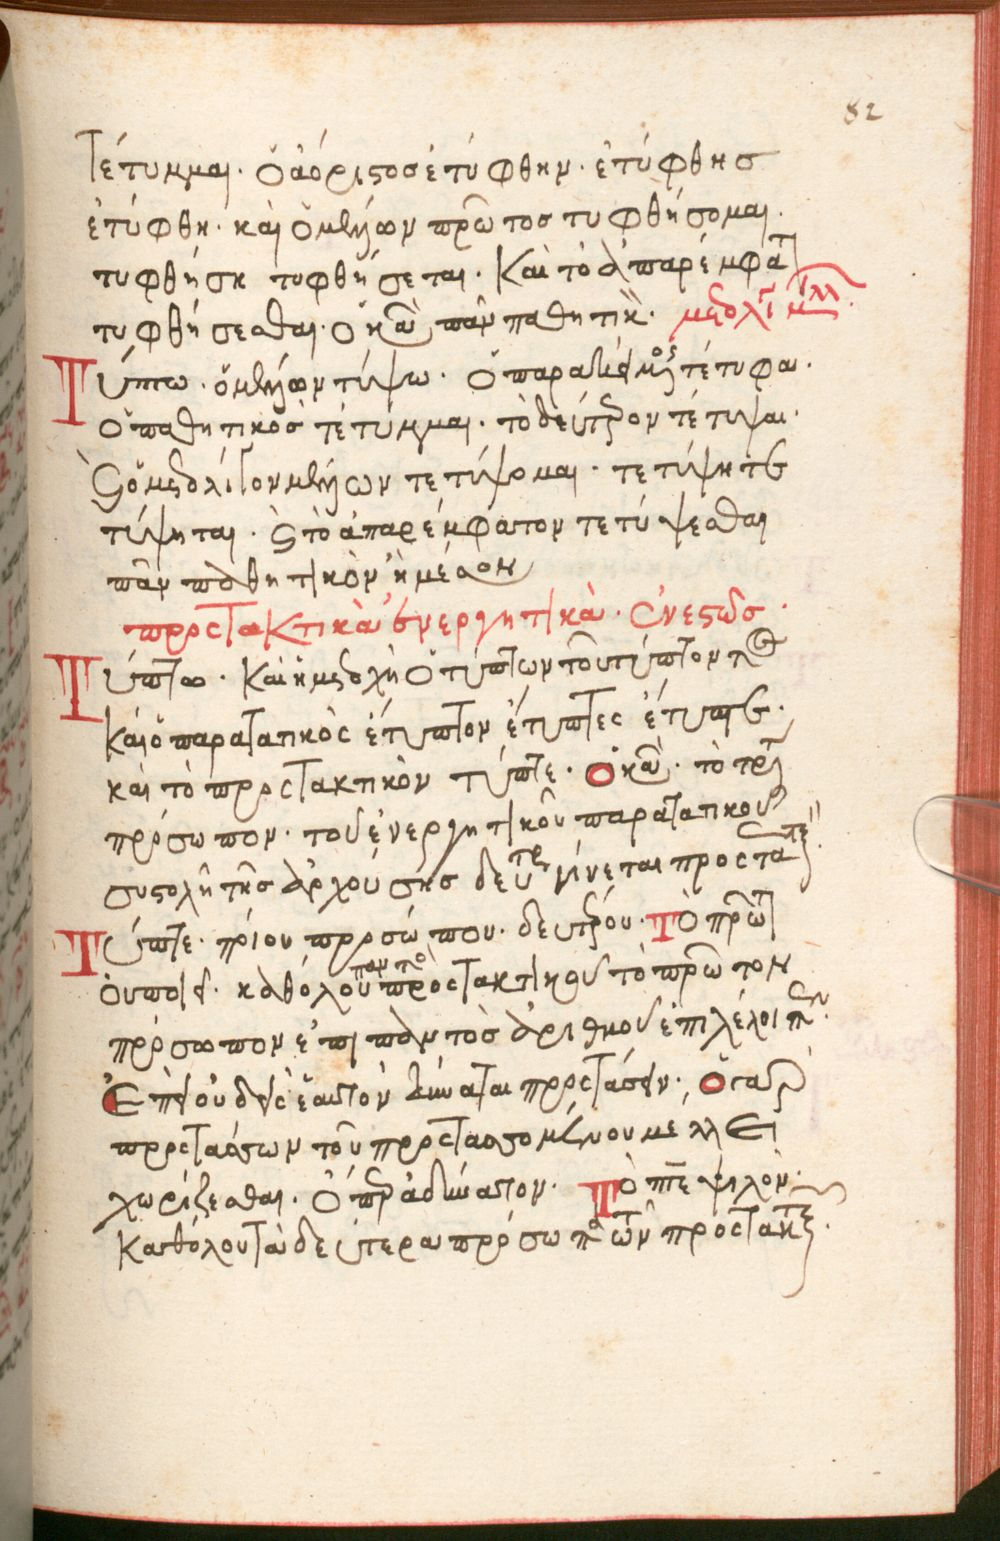 82
Τέτυμμαι. ὁ ἀόριστος ἐτύφθην. ἐτύφθης
ἐτύφθη. καὶ ὁ μέλλων πρῶτος τυφθήσομαι.
τυφθήση τυφθήσεται. Καὶ τὸ ἀπαρέμφατ
τυφθήσεσθαι. ὁ κα παθητικ.
Τύπτω. ὁ μέλλων τύψω. ὁ παρακείμενος τέτυφα.
ὁ παθητικὸς τέτυμμαι. τὸ δεύτερον τέτυψαι.
καὶ ὁ μετ ὀλίγον μέλλων τετύψομαι. τετύψη τε
τύψηται. καὶ τὸ ἀπαρέμφατον τετύψεσθαι
παθητικὸν ἢ μέσον
προστακτικὰ ἐνεργητικὰ. ἐνεστὼς.
Τύπτω. Καὶ ἡ μετοχὴ ὁ τύπτων τοῦ τύπτοντος
Καὶ ὁ παρατατικὸς ἔτυπτον ἔτυπτες ἔτυπτε.
καὶ τὸ προστακτικὸν τύπτε. ὁ κα. τὸ τρί
πρόσωπον. τοῦ ἐνεργητικοῦ παρατατικοῦ
συστολῇ τῆς ἀρχούσης δευτ γίνεται προστα
Τύπτε. ποίου προσώπου. δευτέρου. Τὸ πρῶτ
οὐ ποιεῖ. καθόλου παντὸ προστακτικοῦ τὸ πρῶτον
πρόσωπον ἐπὶ παντὸς ἀριθμοῦ ἐπιλέλοιπεν.
Ἐπεὶ οὐδεὶς ἑαυτὸν δύναται προστάσειν. Ὁ γὰρ
προστάσσων τοῦ προστασσομένου μέλλει
χωρίζεσθαι. ὅπερ ἀδύνατον. Τὸ πε ψιλὸν.
Καθόλου τὰ δεύτερα πρόσωπα τῶν προστακτ.